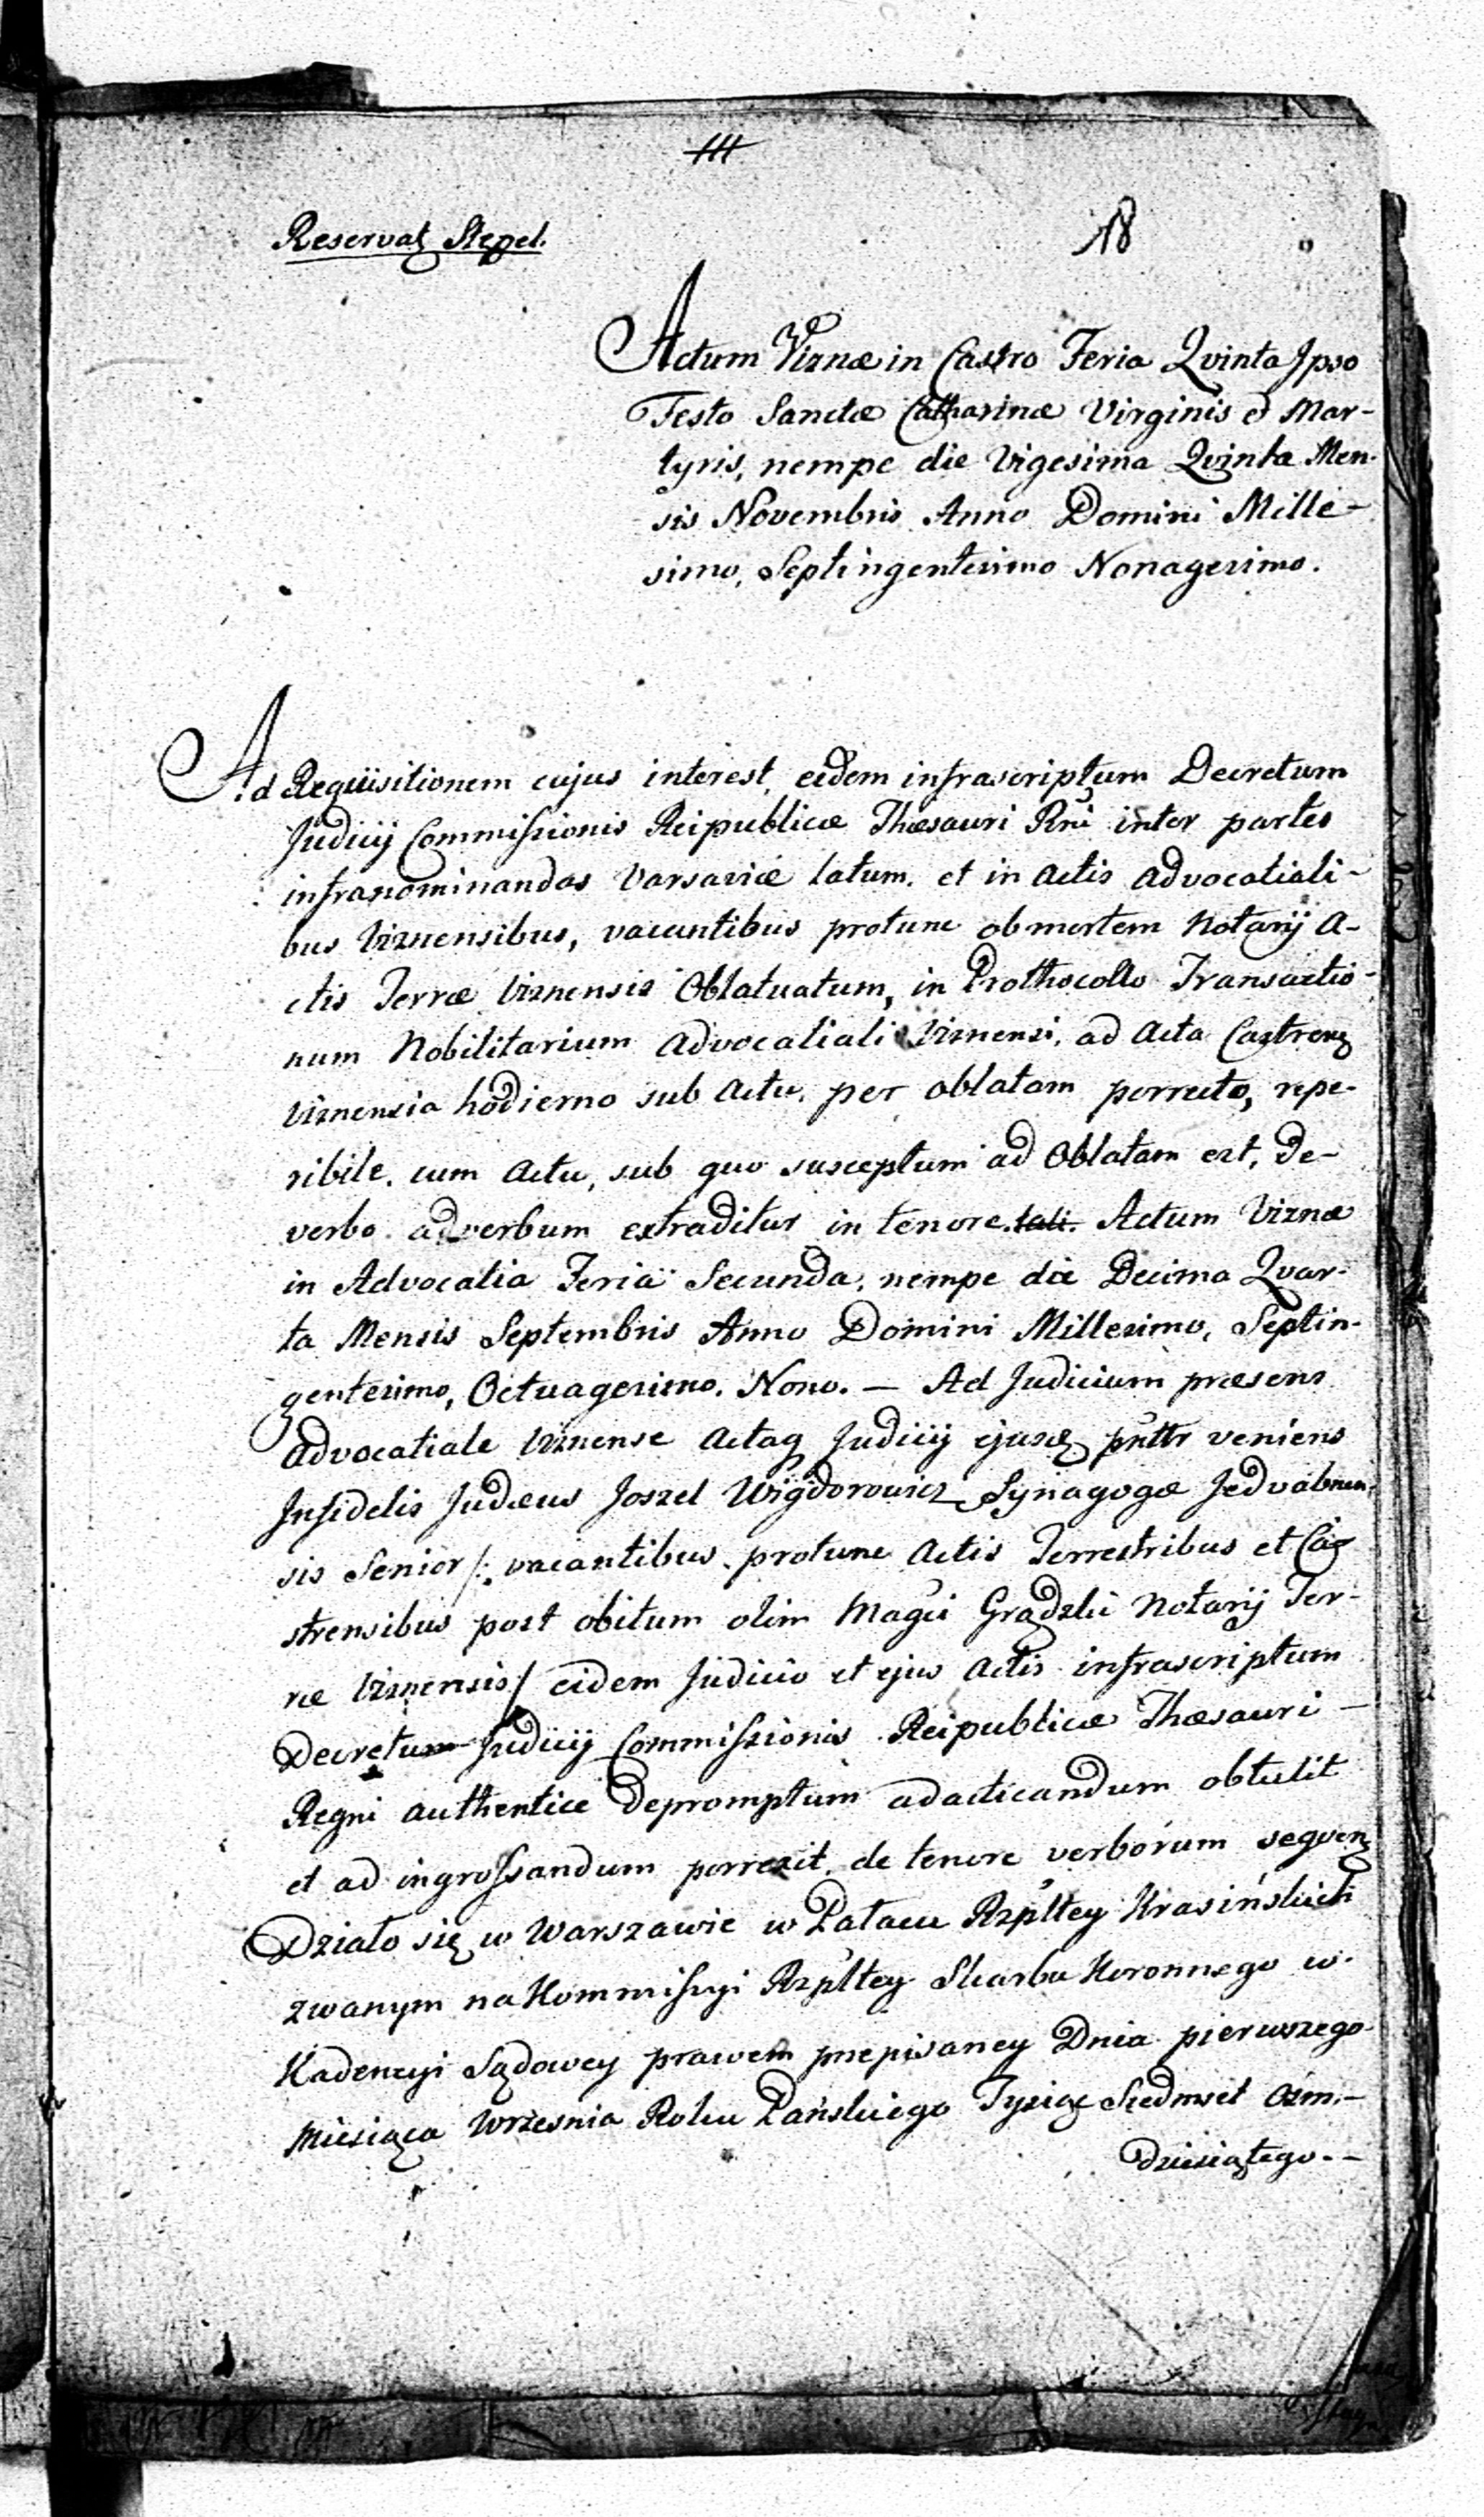 18
Reservat Stepel.
Actum Viznæ in Castro Feria Qvinta Jpso
Festo Sanctæ Catharinæ Virginis et Mar-
tyris, nempe die Vigesima Qvinta Men-
sis Novembris Anno Domini Mille-
simo, Septingentesimo Nonagesimo.
Ad Requisitionem cujus interest, eidem infrascriptum Decretum
Judicij Commissionis Reipublicæ Thæsauri Rni inter partes
infranominandas Varsaviæ latum. et in Actis Advocatiali-
bus Viznensibus, vacantibus protunc ob mortem Notarij A-
ctis Terræ Viznensis Oblatuatum, in Prothocollo Transactio-
num Nobilitarium Advocatiali Viznensi, ad Acta Castrenz
Viznensia hodierno sub Actu, per oblatam porrecto, repe-
ribile. cum Actu, sub quo susceptum ad Oblatam est, De-
verbo ad verbum extraditur in tenore tali. Actum Viznæ
in Advocatia Feria Secunda, nempe die Decima Qvar-
ta Mensis Septembris Anno Domini Millesimo, Septin-
gentesimo, Octuagesimo. Nono. — Ad Judicium præsens
Advocatiale Viznense Actaq Judicij ejusq pnttr veniens
Jnfidelis Judæus Joszel Wigdorowicz Synagogæ Jedvabnen-
sis Senior /: vacantibus protunc Actis Terrestribus et Ca-
strensibus post obitum olim Magci Grądzki Notarij Ter-
ræ Viznensis / eidem Judicio et ejus Actis infrascriptum
Decretum Judicij Commissionis Reipublicæ Thæsauri —
Regni authentice Depromptum ad acticandum obtulit
et ad ingrossandum porrexit, de tenore verborum seqvenz
Działo się w Warszawie w Pałacu Rzpltey Krasińskich
zwanym na Kommissyi Rzpltey Skarbu Koronnego w
Kadencyi Sądowey prawem przepisaney Dnia pierwszego
Miesiąca Wrzesnia Roku Pańskiego Tysiąc Siedmset Osm.-
Dziesiątego--